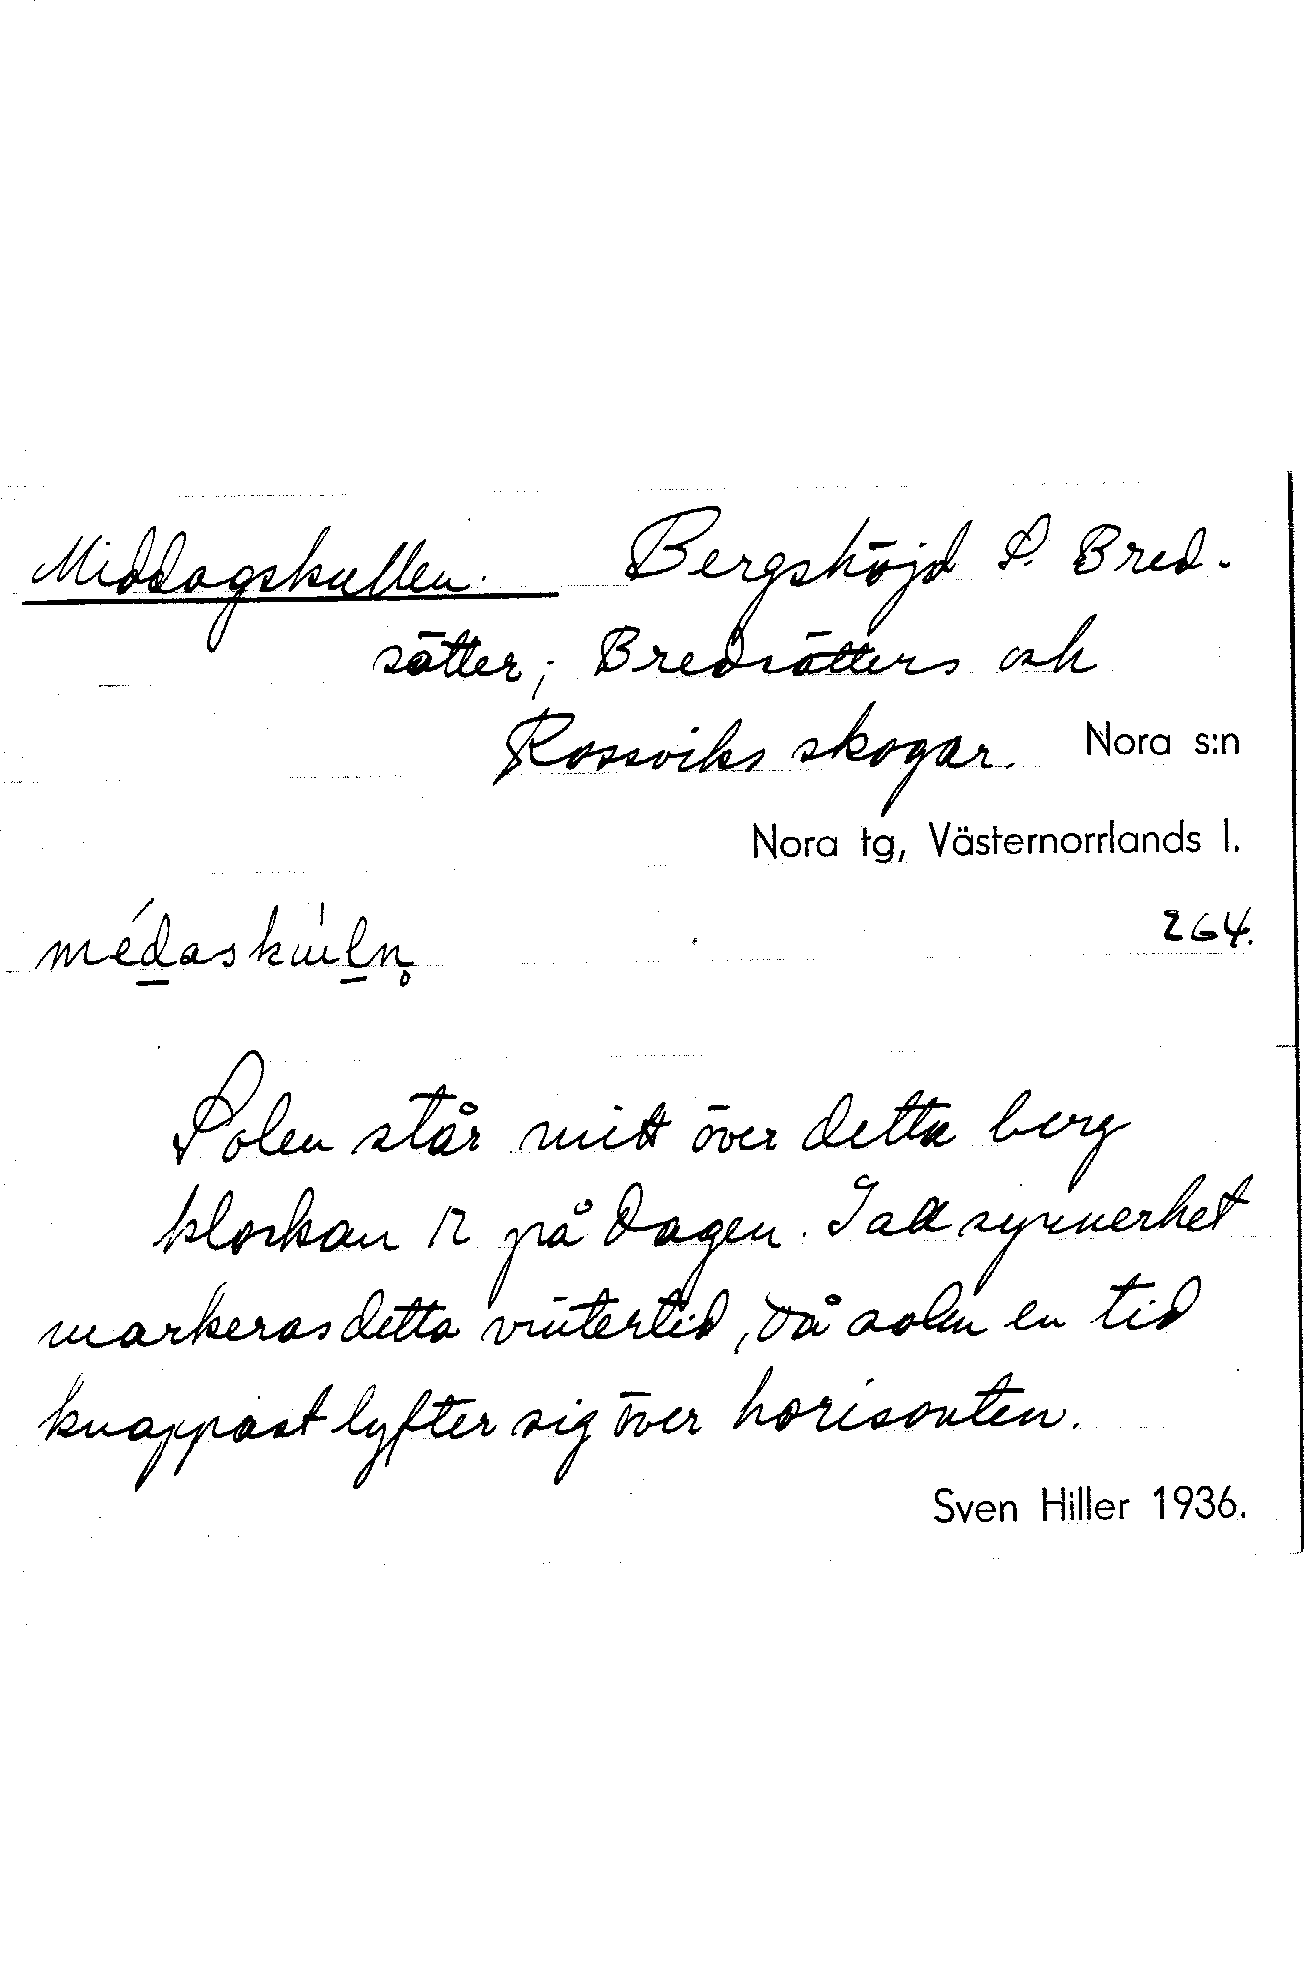 Middagskullen. Bergshöjd S. Bred-
sätter; Bredsätters och
Rossviks skogar. Nora s:n
Nora tg, Västernorrlands l.
264.
médaskúln̥
Solen står mitt över detta berg
klockan 12 på dagen. I all synnerhet
markeras detta vintertid, då solen en tid
knappast lyfter sig över horisonten.
Sven Hiller 1936.